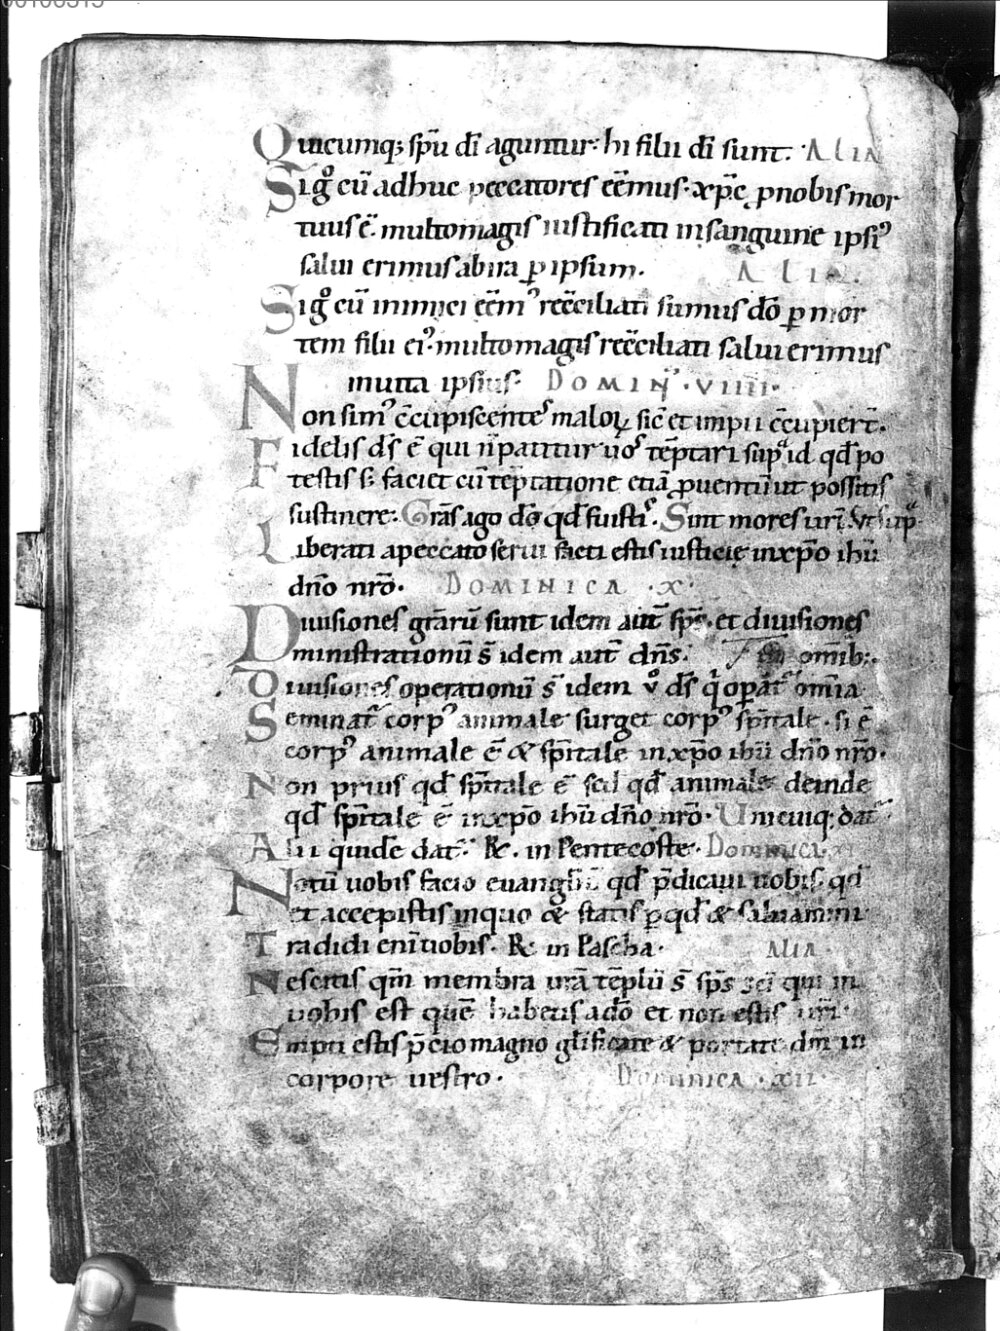 Quicumq; sp̄u dī aguntur· hi filii dī sunt. Alia
Sigͦ cū adhuc peccatores eēmus· xp̄c ꝓ nobis mor
tuus ē· multomagis iustificati in sanguine ipsiꝰ
salui erimus ab ira ꝑ ipsum. Alia.
Sigͦ cū inimici eēmꝰ rec̄ciliati sumus dō ꝑ mor
tem filii eiꝰ· multomagis rec̄ciliati salui erimus
in uita ipsius· Dominꝭ· viiii·
Non simꝰ c̄cupiscenteˢ maloꝝ sic̄ et impii c̄cupiert̄.
Fidelis ds̄ ē qui n̄ patitur uoˢ tēptari supͣ id qd̄ po
testis s; faciet cū tēptatione etiā ꝓuentū ut possitis
sustinere· Grās ago dō qd̄ fuistiˢ. Sint mores urī. Vt supͣ
Liberati a peccato serui facti estis iusticię in xp̄o ihū
dn̄o nr̄o· Dominica ·x·
Diuisiones grārū sunt idem aut̄ sp̄s· et diuisiones
ministrationū s̄ idem aut̄ dn̄s· omib;·
Diuisiones operationū s̄ idem vͦ ds̄ qͥ operat᷑ om̄ia
Seminat᷑ corpꝰ animale surget corpꝰ sp̄itale· si ē
corpꝰ animale ē & sp̄itale in xp̄o ihū dn̄o nr̄o·
Non prius qd̄ sp̄itale ē sed qd̄ animale deinde
qd̄ sp̄itale ē in xp̄o ihū dn̄o nr̄o· Unicuiq; dat᷑·
Alii quidē dat᷑· R. in Pentecoste· Dominica xi
Notū uobis facio euanḡliū qd̄ p̄dicaui uobis· qd̄
et accepistis in quo & statis ꝑ qd̄ & saluamini·
Tradidi enī uobis· R. in Pascha· Alia
Nescitis qm̄ membra urā tēplū s̄ sp̄s scī qui in
uobis est quē habetis a dō et non estis urī·
Empti estis p̄cio magno gl̄ificate & portate dm̄ in
corpore uestro· Dominica ·xii·